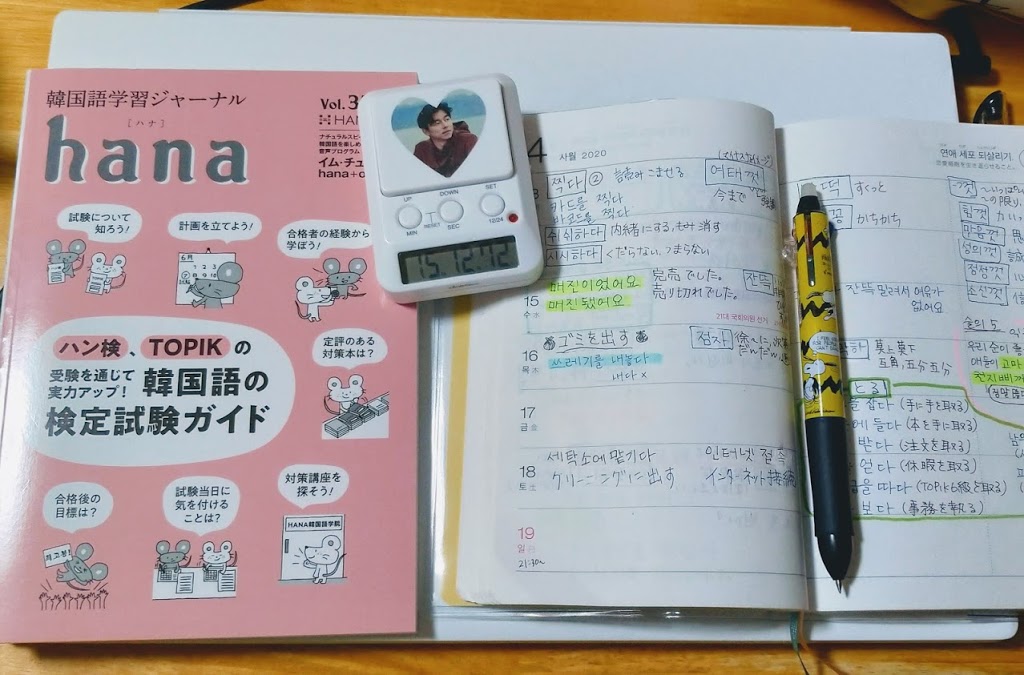 韓国語学習ジャーナル
[ハナ]
hana
Vol.
HAN
ナチュラルスピ
韓国語を楽しめ
音声プログラム
イム・チュ
hana+
試験について
知ろう!
計画を立てよう!
6月
1 2 3
合格者の経験から
学ぼう!
定評のある
対策本は?
ハン検、TOPIKの
受験を通じて
実力アップ!
韓国語の
検定試験ガイド
合格後の
目標は?
최고봉!
試験当日に
気を付ける
ことは?
対策講座を
探そう!
HANA韓国語学院
UP
DOWN
SET
MIN
RESET
SEC
12/24
15.12.42
4 사월 2020
찍다 ②
여태껏
今まで
카드를 찍다
바코드를 찍다
쉬쉬하다 内緒にする,もみ消す
시시하다 くだらない,つまらない
15
수 水
매진이었어요
매진됐어요
完売でした。
売り切れでした。
잔뜩
21대 국회의원 선거
16
목 木
ゴミを出す
쓰레기를 내놓다
내다 x
점차 徐々に,
17
금 金
18
토 土
세탁소에 맡기다
クリーニングに出す
인터넷 접속
インターネット接続
19
일 日
21:30~
연애 세포 되살리기
ずっと
かちかち
잔뜩 밀려서 여유가
없어요
莫上莫下
互角,五分五分
とる
잡다 (手に手を取る)
에 들다 (本を手に取る)
받다 (注文を取る)
쉬다 (休暇を取る)
을 따다 (TOPIK6級を取る)
보다 (事務を執る)
힘껏
마음껏
성의껏
정성껏
소신껏